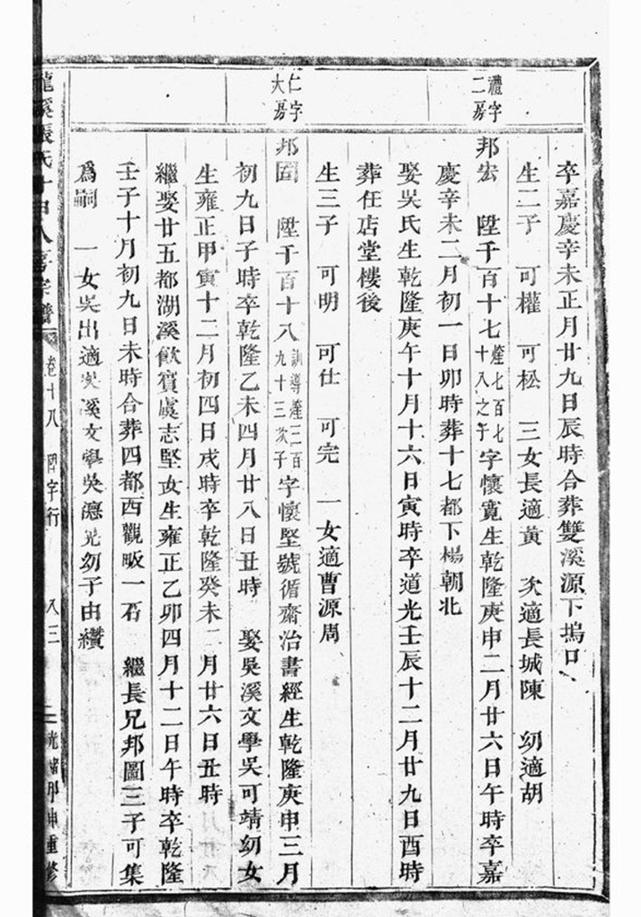 禮字
二房
卒嘉慶辛未正月廿九日辰時合葬雙溪源下塢口
生二子 可權 可松 三女長適黃 次適長城陳 幼適胡
邦宏 陞千百十七
燈七百七
十八之子
字懷寬生乾隆庚申二月廿六日午時卒嘉
慶辛未二月初一日卯時葬十七都下楊朝北
娶吳氏生乾隆庚午十月十六日寅時卒道光壬辰十二月廿九日酉時
葬任店堂樓後
生三子 可明 可仕 可完 一女適曹源周
仁字
大房
邦固 陞千百十八
訓導燈二百
九十三次子
字懷堅號循齋治書經生乾隆庚申三月
初九日子時卒乾隆乙未四月廿八日丑時 娶吳溪文學吳可靖幼女
生雍正甲寅十二月初四日戌時卒乾隆癸未二月廿六日丑時
繼娶廿五都湖溪飲賓虞志堅女生雍正乙卯四月十二日午時卒乾隆
壬子十月初九日未時合葬四都西觀畈一石 繼長兄邦圖三子可集
爲嗣 一女吳出適吳溪文學吳德光幼子由纘
龍溪張氏 宗譜 卷十八 國字行 八三 光緒丙申重修